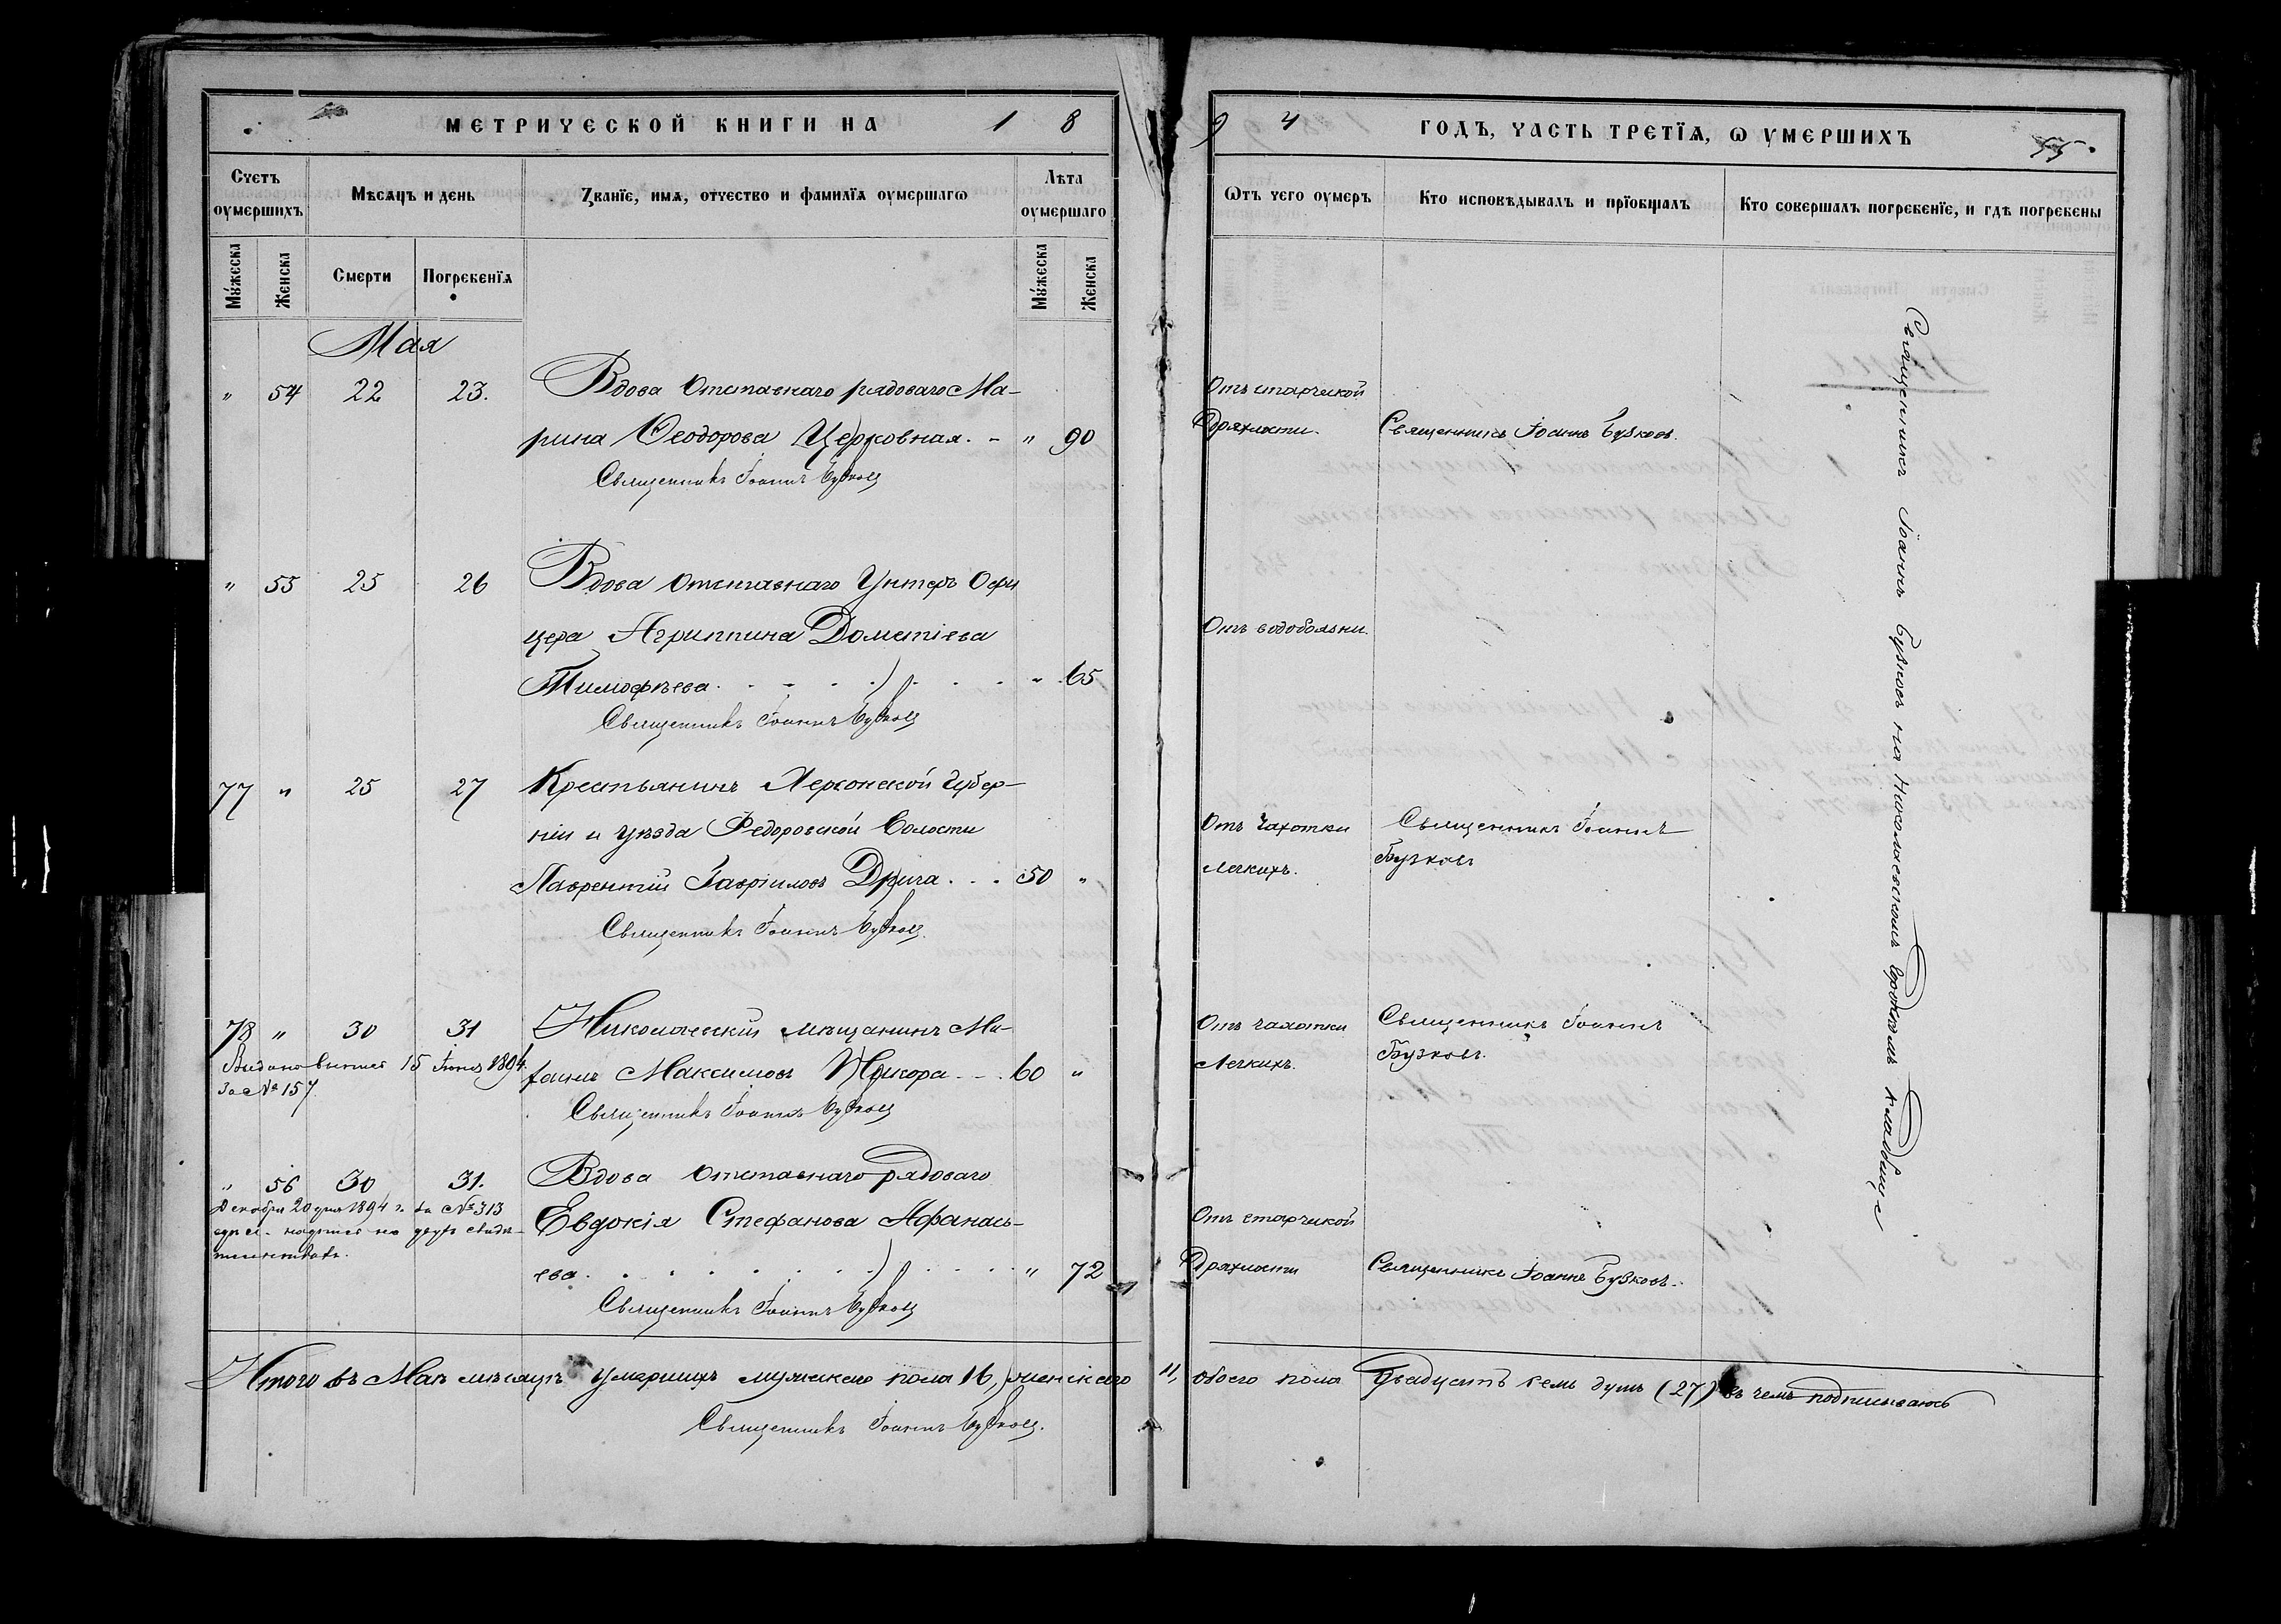 МЕТРИЧЕСКОЙ КНИГИ НА 1 8
Счетъ оумершихъ
Мѣсяцъ и день
Званїе, имѧ, отчество и фамилїѧ оумершагѡ
Лѣта оумершаго
Мꙋжеска
Женска
Смерти
Погребенїѧ
Мꙋжеска
Женска
Мая
" 54 22 23. Вдова Отставнаго рядоваго Ма-
рина Ѳеодорова Церковная. - " 90
Священникъ Іоаннъ Бузковъ
" 55 25 26 Вдова Отставнаго Унтеръ Офи
цера Агриппина Дометіева
Тимофѣева . . . . . " 65
Священникъ Іоаннъ Бузковъ
77 " 25 27 Крестьянинъ Херсонской Губер-
ніи и уѣзда Федоровской Волости
Лаврентій Гавріиловъ Дрига . . . 50 "
Священникъ Іоаннъ Бузковъ
78 " 30 31 Николаевскій мѣщанинъ Ма-
Максимовъ . . 60 "
Выдано 15 Іюня 1894
За № 157
Священникъ Іоаннъ Бузковъ
" 56 30 31. Вдова Отставнаго рядоваго
Евдокія Стефанова Афанась-
ева . . . . . " 72
Декабря 20 дня 1894 г. за № 313
Священникъ Іоаннъ Бузковъ
Итого въ Маѣ мѣсяцѣ умершихъ мужескаго пола 16, женскаго
Священникъ Іоаннъ Бузковъ.
9 4 ГОДЪ, ЧАСТЬ ТРЕТЇѦ, Ѡ УМЕРШИХЪ
55
Ѿтъ чего оумеръ
Кто исповѣдывалъ и прїобщалъ
Кто совершалъ погребенїе, и гдѣ погребены
Отъ старческой
Дряхлости. Священникъ Іоаннъ Бузковъ.
Отъ водобоязни.
Отъ Чахотки Священникъ Іоаннъ
Легкихъ. Бузковъ
Отъ чахотки Священникъ Іоаннъ
Легкихъ. Бузковъ.
Отъ старчекой
Дряхлости Священникъ Іоаннъ Бузковъ.
Священникъ Іоаннъ Бузковъ на Николаевскомъ Городскомъ кладбище
11, обоего пола Двадцать семь душъ (27) въ чемъ подписываюсь